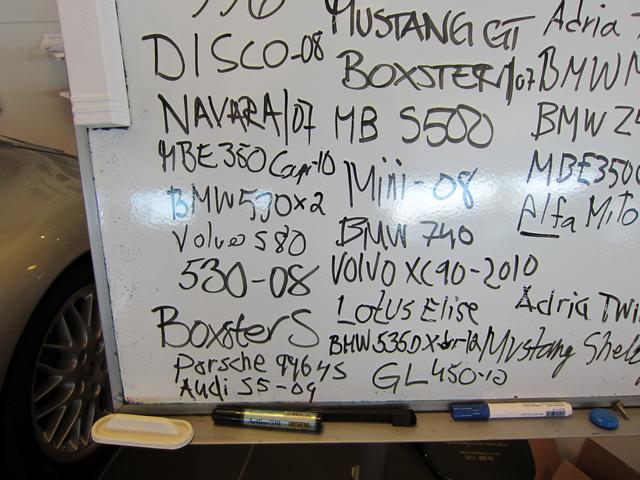 DISCO-08
NAVARA/07
MBE350 Cap-10
BMW530x2
Volvo S80
530-08
Boxster S
Porsche 996 4S
Audi S5-09
MUSTANG GT
BOXSTER/07
MB S500
Mini-08
BMW 740
VOLVO XC90-2010
Lotus Elise
BMW535D Xdr-10/Mustang Shelb
GL450-10
Adria
BMW M
BMW Z
MBE350
Alfa MiTo
Adria Twi